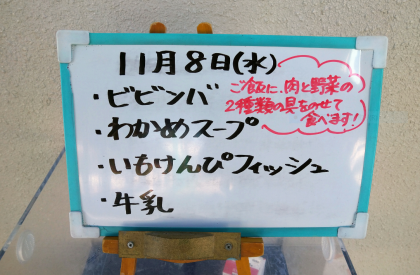 11月8日(水)
・ビビンバ
ご飯に、肉と野菜の
2種類の具をのせて
食べます!
・わかめスープ
・いもけんぴフィッシュ
・牛乳